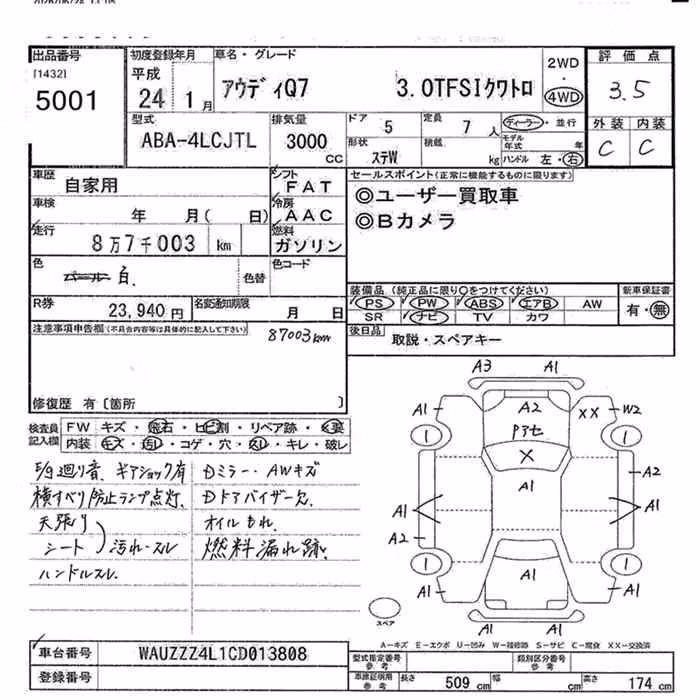 出品番号
[1432]
5001
初度登録年月
平成
24 1月
車名・グレード
アウディQ7 3.0TFSIクワトロ
2WD
・
4WD
評価点
3.5
外装 内装
C C
型式
ABA-4LCJTL
排気量
3000
CC
ドア 5
定員 7 人
形状 ステW
積載 kg
ディーラー・並行
モデル年式 年
ハンドル 左・右
車歴
自家用
シフト
FAT
車検
年 月( 日)
冷房
AAC
走行
8万7千003 km
燃料
ガソリン
色
パール白.
色替
色コード
R券
23,940円
名変通知期限
月 日
セールスポイント(正常に機能するものに限ります)
◎ユーザー買取車
◎Bカメラ
装備品 (純正品に限り○をつけてください)
PS PW ABS エアB AW
SR ナビ TV カワ
新車保証書
有・無
後日品
取説・スペアキー
注意事項申告欄(不具合内容等は具体的に記入して下さい)
87003km
修復歴 有〔箇所 〕
検査員記入欄
FW キズ・飛石・ヒビ割・リペア跡・
内装 キズ・・コゲ・穴・スレ・キレ・破レ
廻り音、ギアショック有
横すべり防止ランプ点灯、
天張り
シート
汚れ・スレ
ハンドルスレ.
Dミラー・AWキズ
Dドアバイザー欠、
オイルもれ、
燃料漏れ跡、
A3 A1
A1 A2 XX W2
アセ
X
A1
A2
A1 A1
A2
A1 A1 A1
A1
スペア
A−キズ E−エクボ U−凹み W−補修跡 S−サビ C−腐食 XX−交換済
車台番号
WAUZZZ4L1CD013808
登録番号
型式指定番号
参考
類別区分番号
参考
車庫証明用
参考
長さ 509 cm
幅 cm
高さ 174 cm